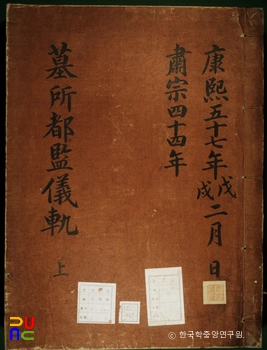 康熙五十七年戊戌二月 日
肅宗四十四年
墓所都監儀軌 上
ⓒ 한국학중앙연구원